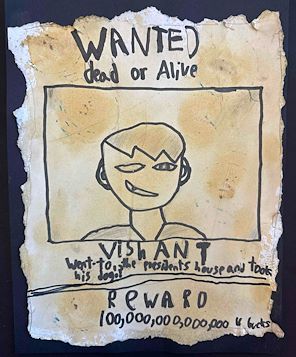 WANTED
dead or Alive
VISHANT
Went to the presidents house and took
his dog!
REWARD
100,000,000,000,000 u bucks